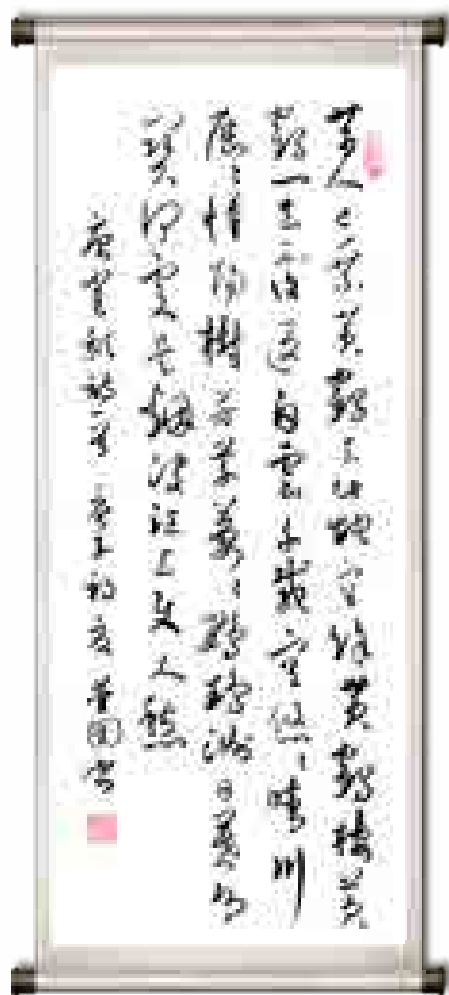 昔人已乘黄鶴去此地空餘黄鶴樓黄
鶴一去不復返白雲千載空悠々晴川
歷々漢陽樹芳草萋々鸚鵡洲日暮鄉
關何處是煙波江上使人愁